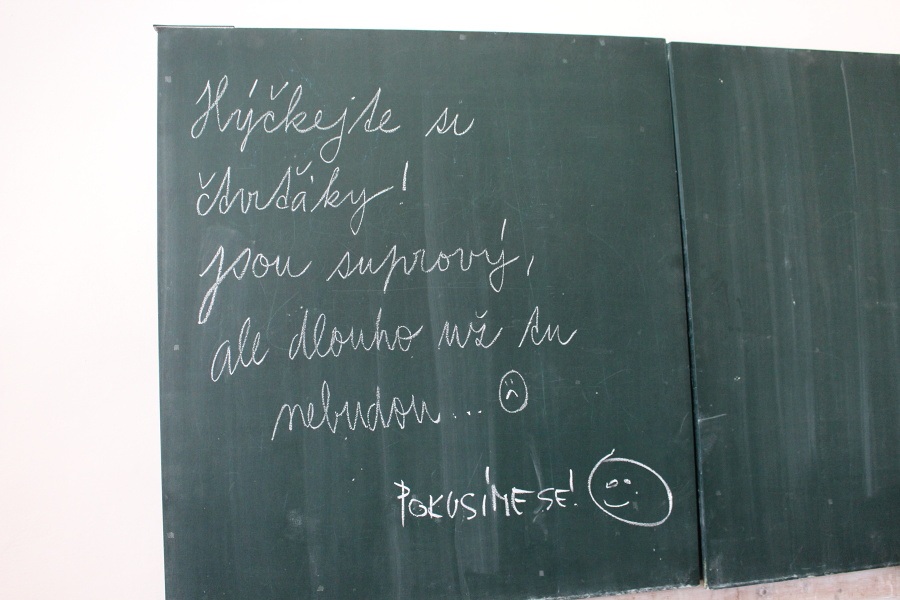 Hýčkejte si
čtvrťáky!
jsou suprový,
ale dlouho už tu
nebudou...
POKUSÍME SE!